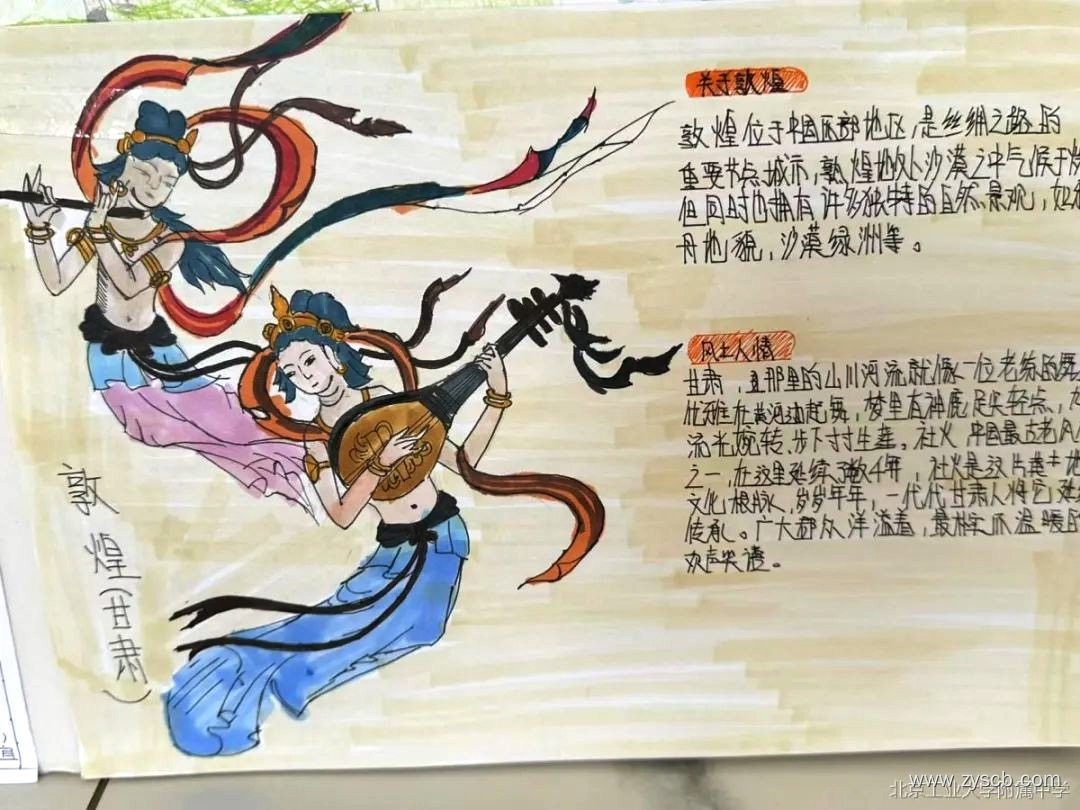 关于敦煌
敦煌位于中国西部地区,是丝绸之路的
重要节点城市,敦煌地处沙漠之中气候干燥
但同时也拥有许多独特的自然景观,如
丹地貌,沙漠绿洲等。
风土人情
甘肃,且那里的山川河流就像一位老练的舞
优雅在黄河边起舞,梦里有神鹿足尖轻点,
流光婉转,步下寸寸生莲。社火,中国最古老风
之一,在这里延续了数千年,社火是这片黄土地
文化根脉,岁岁年年,一代代甘肃人将它延
传承。广大群众洋溢着,最朴实温暖的
欢声笑语。
敦煌(甘肃)
www.zyscb.com
北京工业大学附属中学